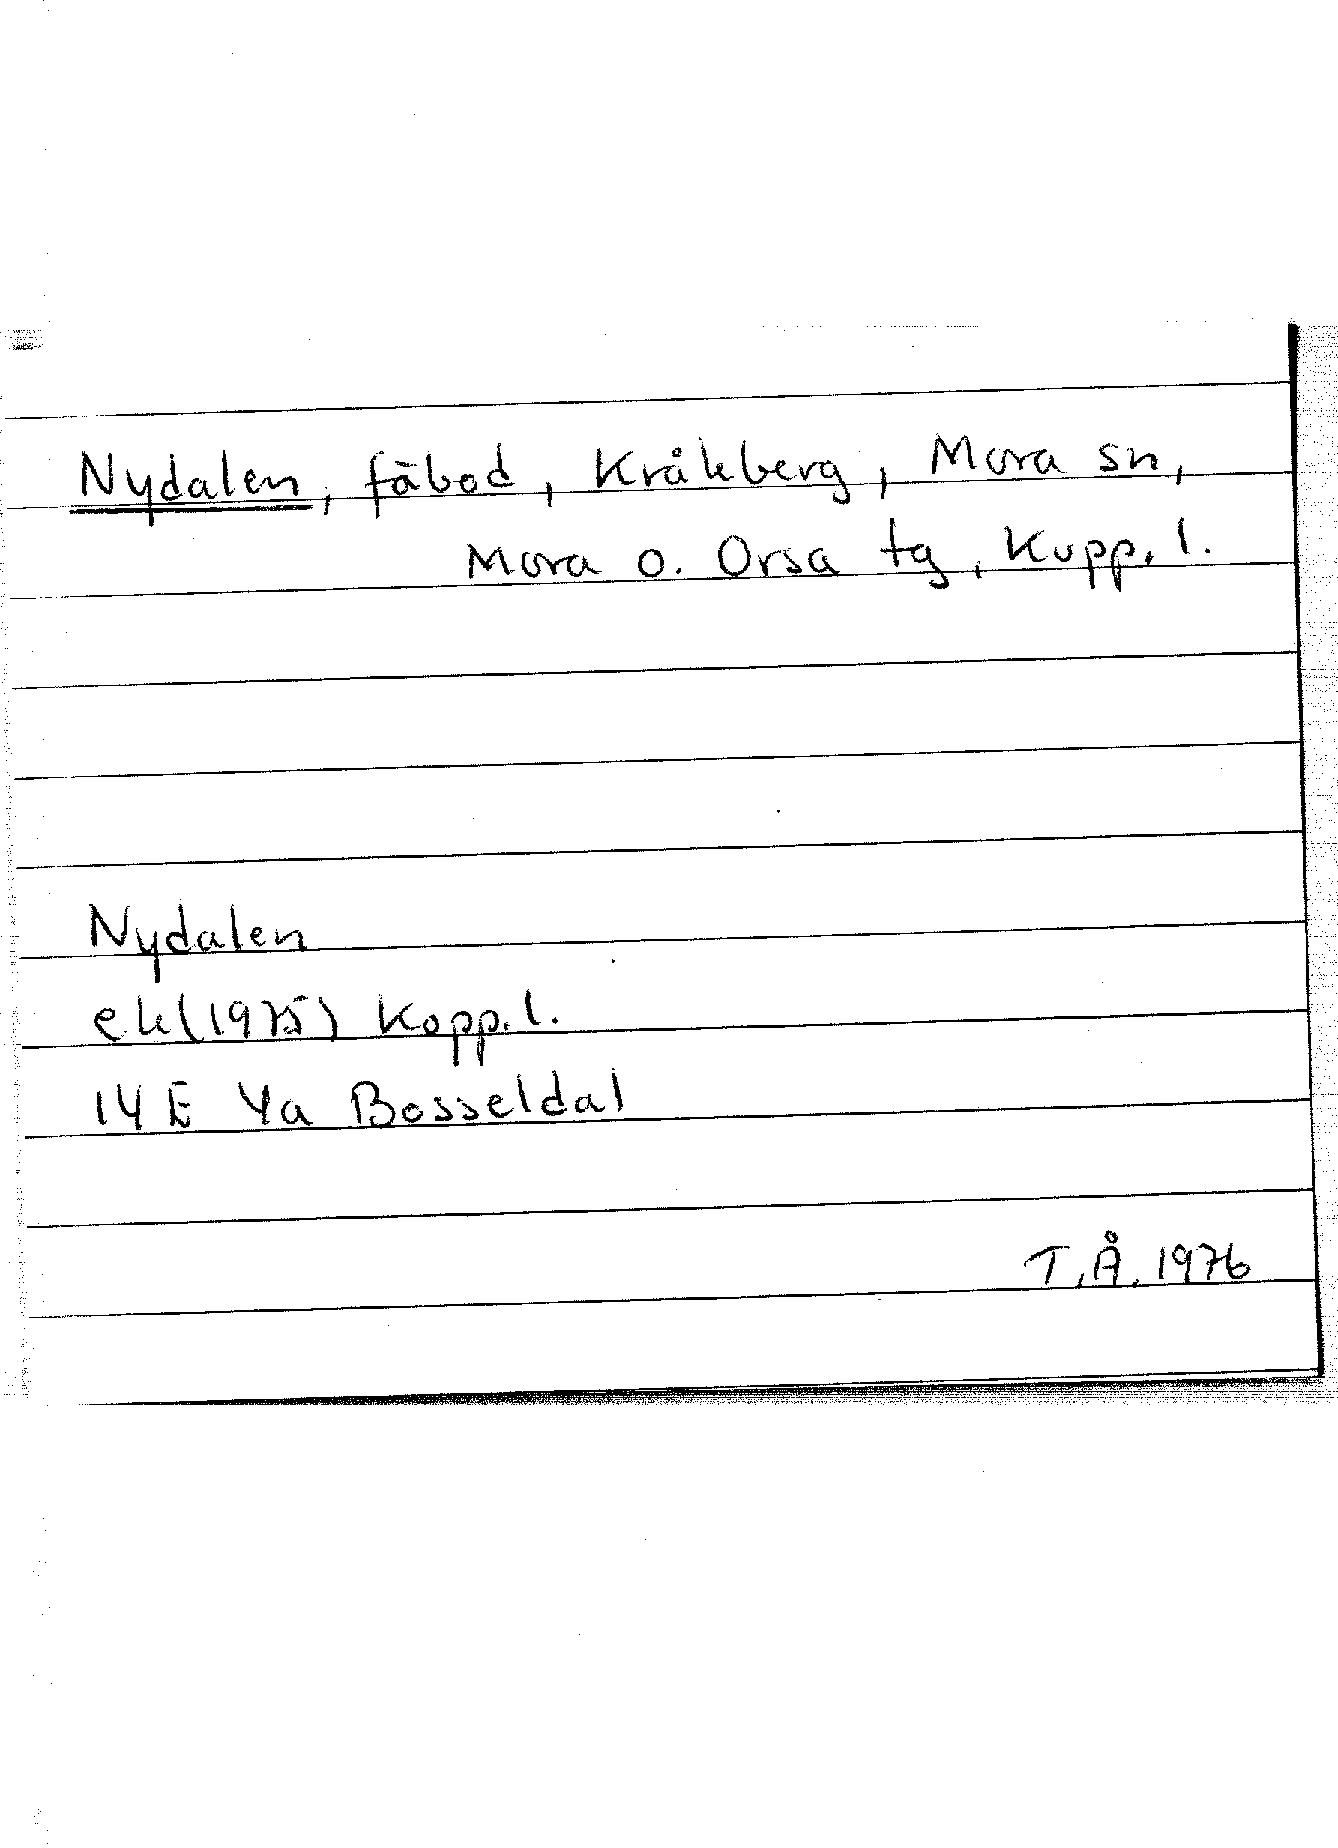 Nydalen, fäbod, Kråkberg, Mora sn,
Mora o. Orsa tg, Kopp. l.
Nydalen
ek (1975) Kopp. l.
14 E 4a Bosseldal
T.Å. 1976